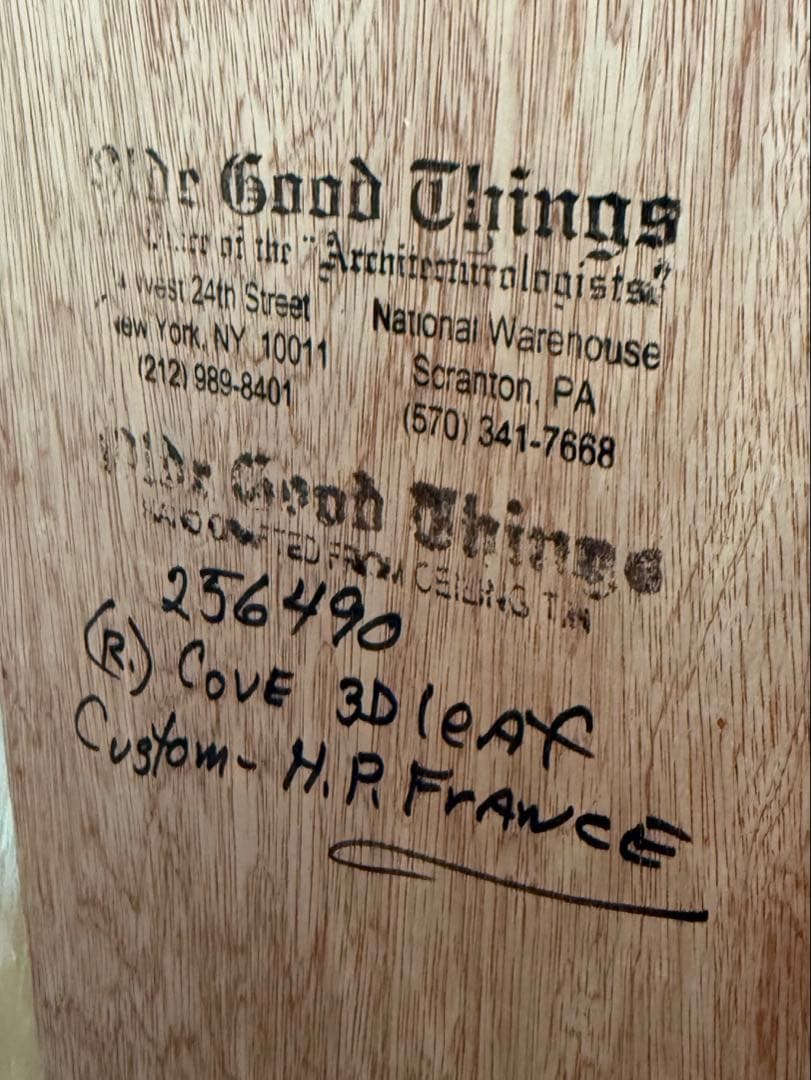 Olde Good Things
of the "Architecturologists"
West 24th Street
New York, NY 10011
(212) 989-8401
National Warehouse
Scranton, PA
(570) 341-7668
Olde Good Things
HANDCRAFTED FROM CEILING TIN
256490
(R.) COVE 3D leAF
Custom- H.P. FrANCE